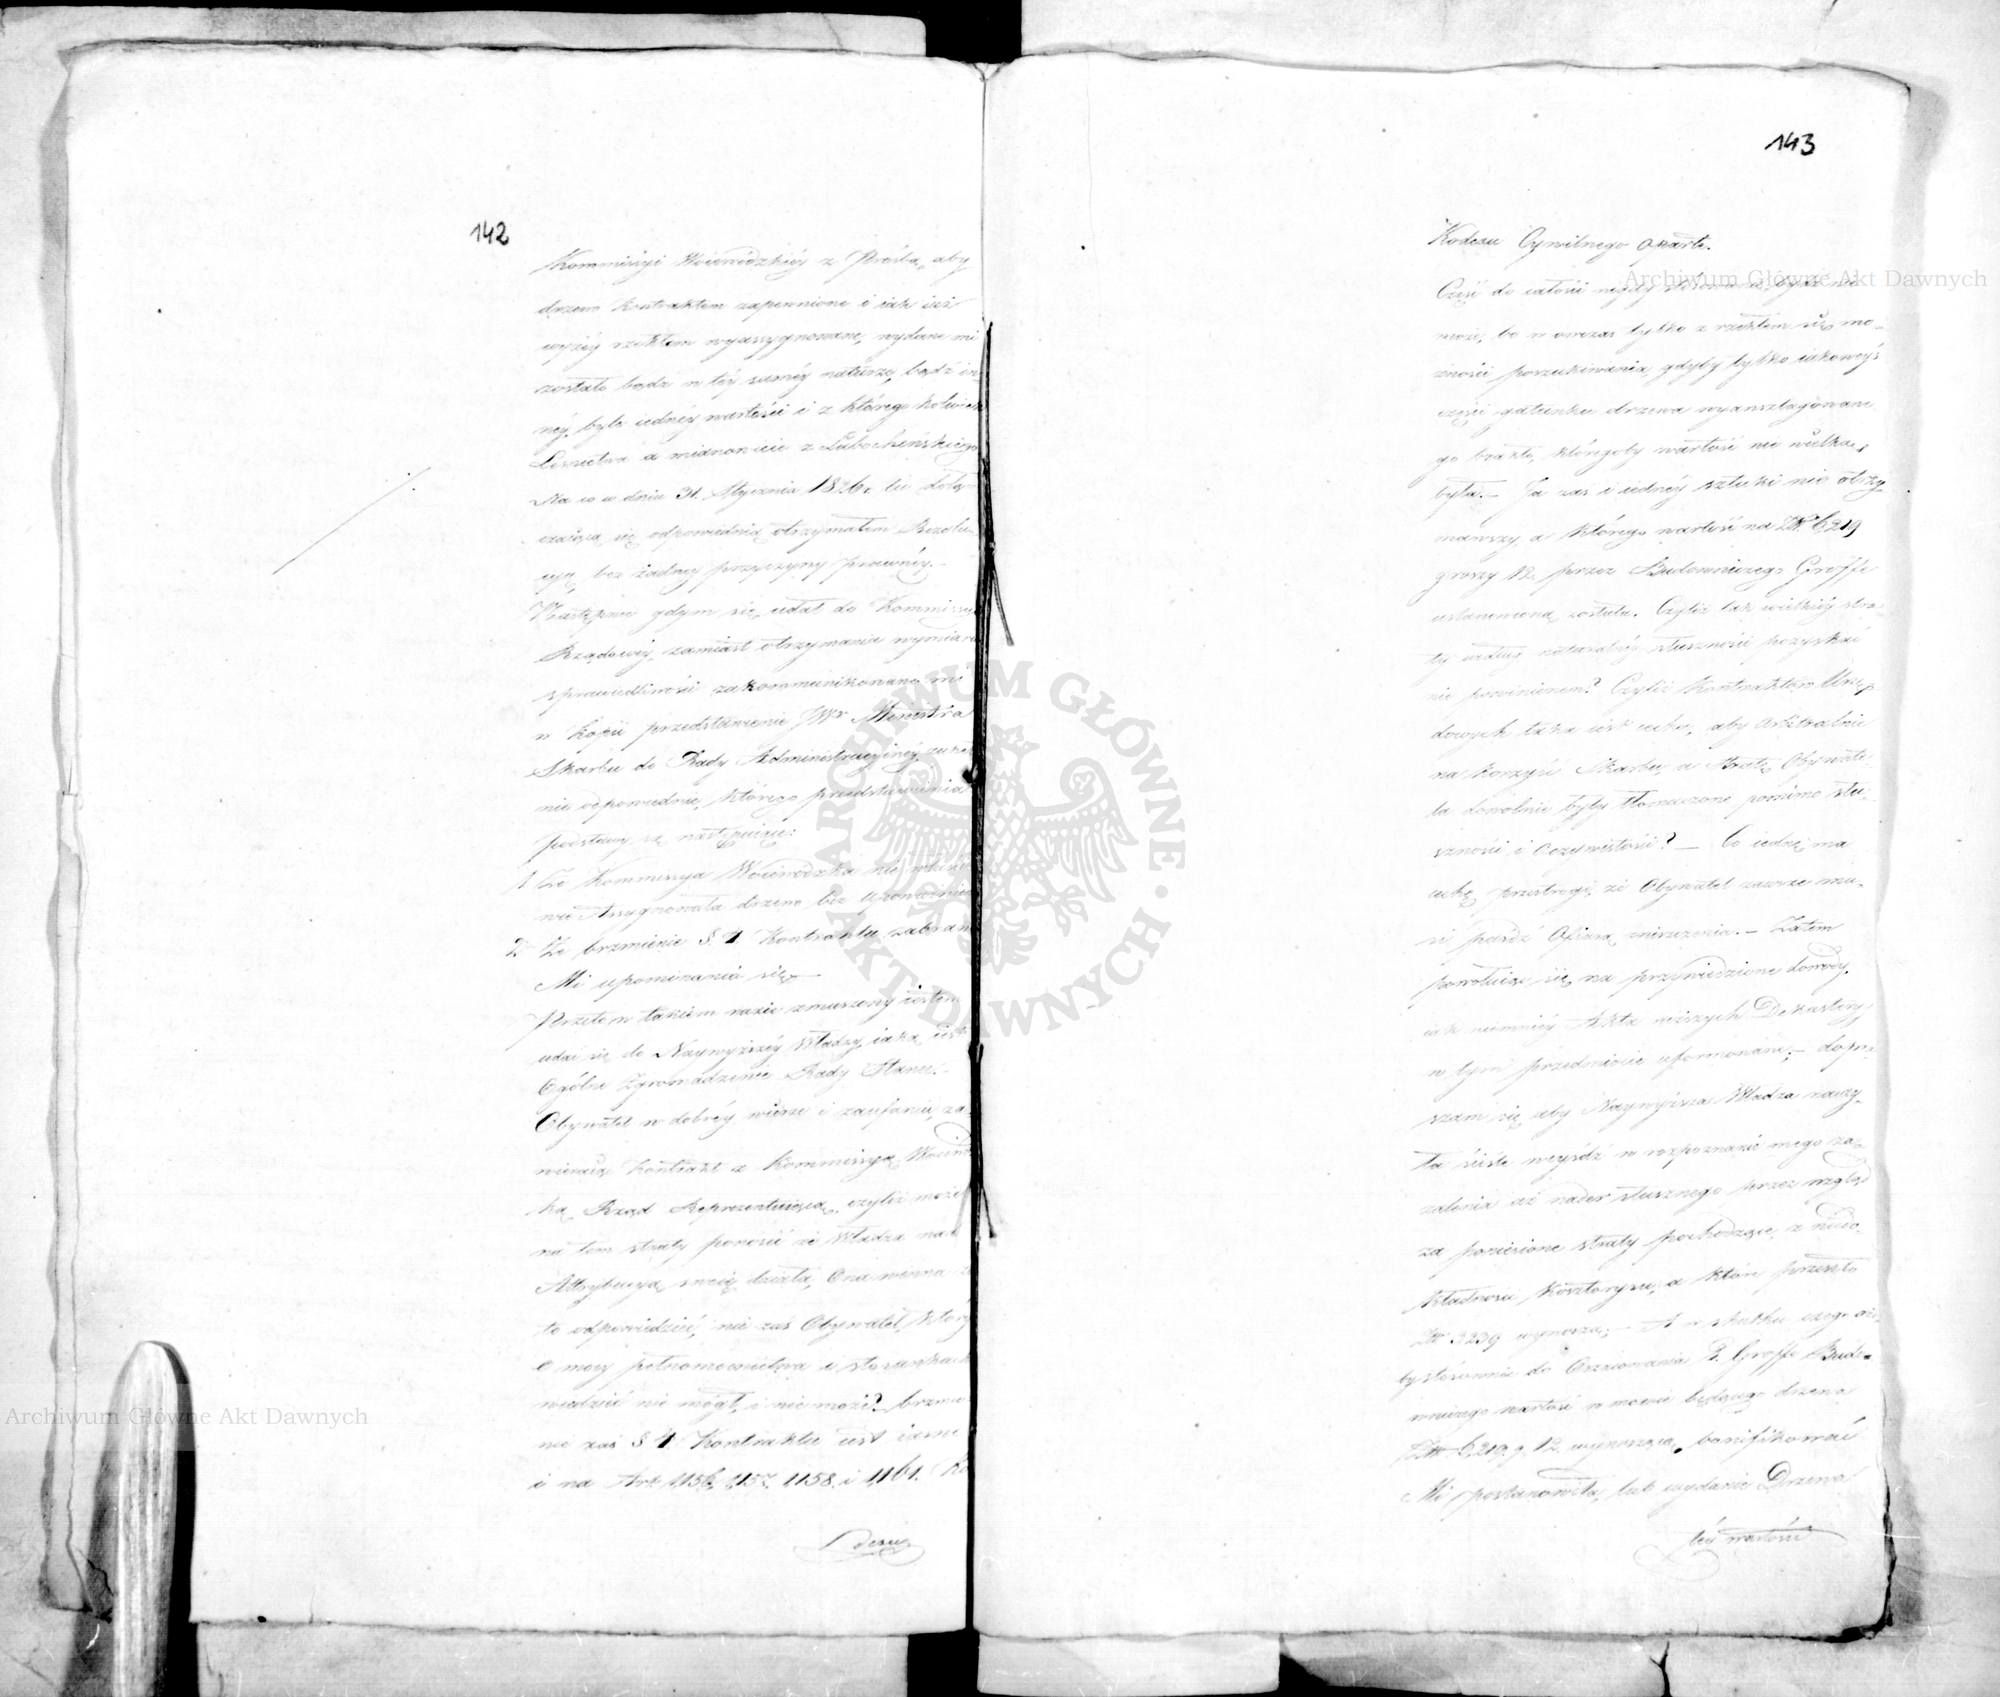 142
Kommissyi Woiewódzkiéy z Prośbą, aby
drzewo kontraktem zapewnione i iak iuż
wyżéy rzekłem wyassygnowane, wydane mi
zostało bądź w téy saméy naturze, bądź in-
néy, byle iednéy wartości i z którego kolwiek
Lesnictwa a mianowicie z Lubocheńskiego
Na co w dniu 31. Stycznia 1826. tu dołą-
czaiącą się odpowiednią otrzymałem Rezolu-
cyą, bez żadney przyczyny prawnéy.-
Następnie gdym się udał do Kommissyi
Rządowéy, zamiast otrzymania wymiaru
sprawiedliwości zakommunikowano mi
w kopii przedstawienie JWr Ministra
Skarbu do Rady Administracyinéy
nie odpowiednie, którego przedstawienia
podstawy są następuiące:
1. Że Kommissya Woiewódzka nie
Assygnowała drzewo bez upoważnienia
2. Że brzmienie §. 4 Kontraktu zabrania
Mi upominania się.-
Przeto w takiem razie zmuszony iestem
udać się do Naywyższéy Władzy iaką iest
Ogólne Zgromadzenie Rady Stanu.-
Obywatel w dobréy wierze i zaufaniu, za-
wieraiąc kontrakt z Kommissyą Woiewódz
ką Rząd Reprezentuiącą, czyliż może
na tem straty ponosić że Władza nad
Attrybucyą swoię działa, Ona winna za
to odpowiedzieć, nie zaś Obywatel, który
O mocy pełnomocnictwa i stosunkach
wiedzieć nie mógł, i nie może? brzmie
nie zaś § 4 Kontraktu iest iasne
i na Art: 1156, 1157, 1158. i 1161. Ko
dexu
143
Kodexu Cywilnego oparte.
Część do całości nigdy stosowaną bydź nie
może, bo w owczas tylko z resztem się mo-
żności poszukiwania, gdyby tylko iakowéyś
części gatunku drzewa wyansztagowane
go brakło, któregoby wartość nie wielka
była.- Ja zaś i iednéy sztuki nie otrzy
mawszy, a którego wartość na Złp 6219
groszy 12. przez Budowniczego Groffe
ustanowioną została. Czyliż tak wielkiéy stra-
ty według naturalnéy słuszności pozyskać
nie powinienem? Czyliż Kontraktów Urzę
dowych taka iest cecha, aby Arbitralnie
na korzyść Skarbu, a stratę Obywate-
la dowolnie były tłomaczone pomimo słu-
szności i Oczywistości? - Co iedną ma
cechę przestrogi, że Obywatel zawsze mu-
si paść Ofiarą zniszczenia.- Zatem
powołuiąc się na przywiedzione dowody,
iak niemniéy Akta niższych Dykasteryy
w tym przedmiocie uformowane;- dopra-
szam się aby Naywyższa Władza raczy-
ła ściśle weyśdź w rozpoznanie mego za-
żalenia iż nader słusznego przez wzgląd
za poniesione straty pochodzące z niedo-
kładności Kosztorysu, a które przeszło
Złt 3239 wynoszą;- A w skutku czego aże-
by stosownie do Oszacowania P. Groffe Budo-
wniczego wartość w mowie będącego drzewa
Złt 6,219. g. 12. wynoszącą, bonifikować
Mi postanowiła, lub wydanie Drzewa
téy wartości